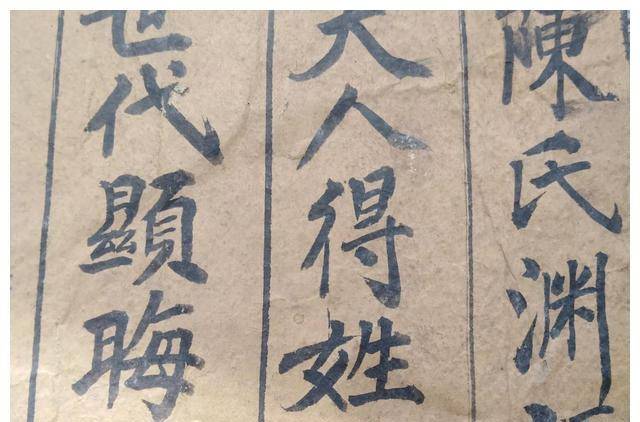 陳氏渊
大人得姓
世代顯晦